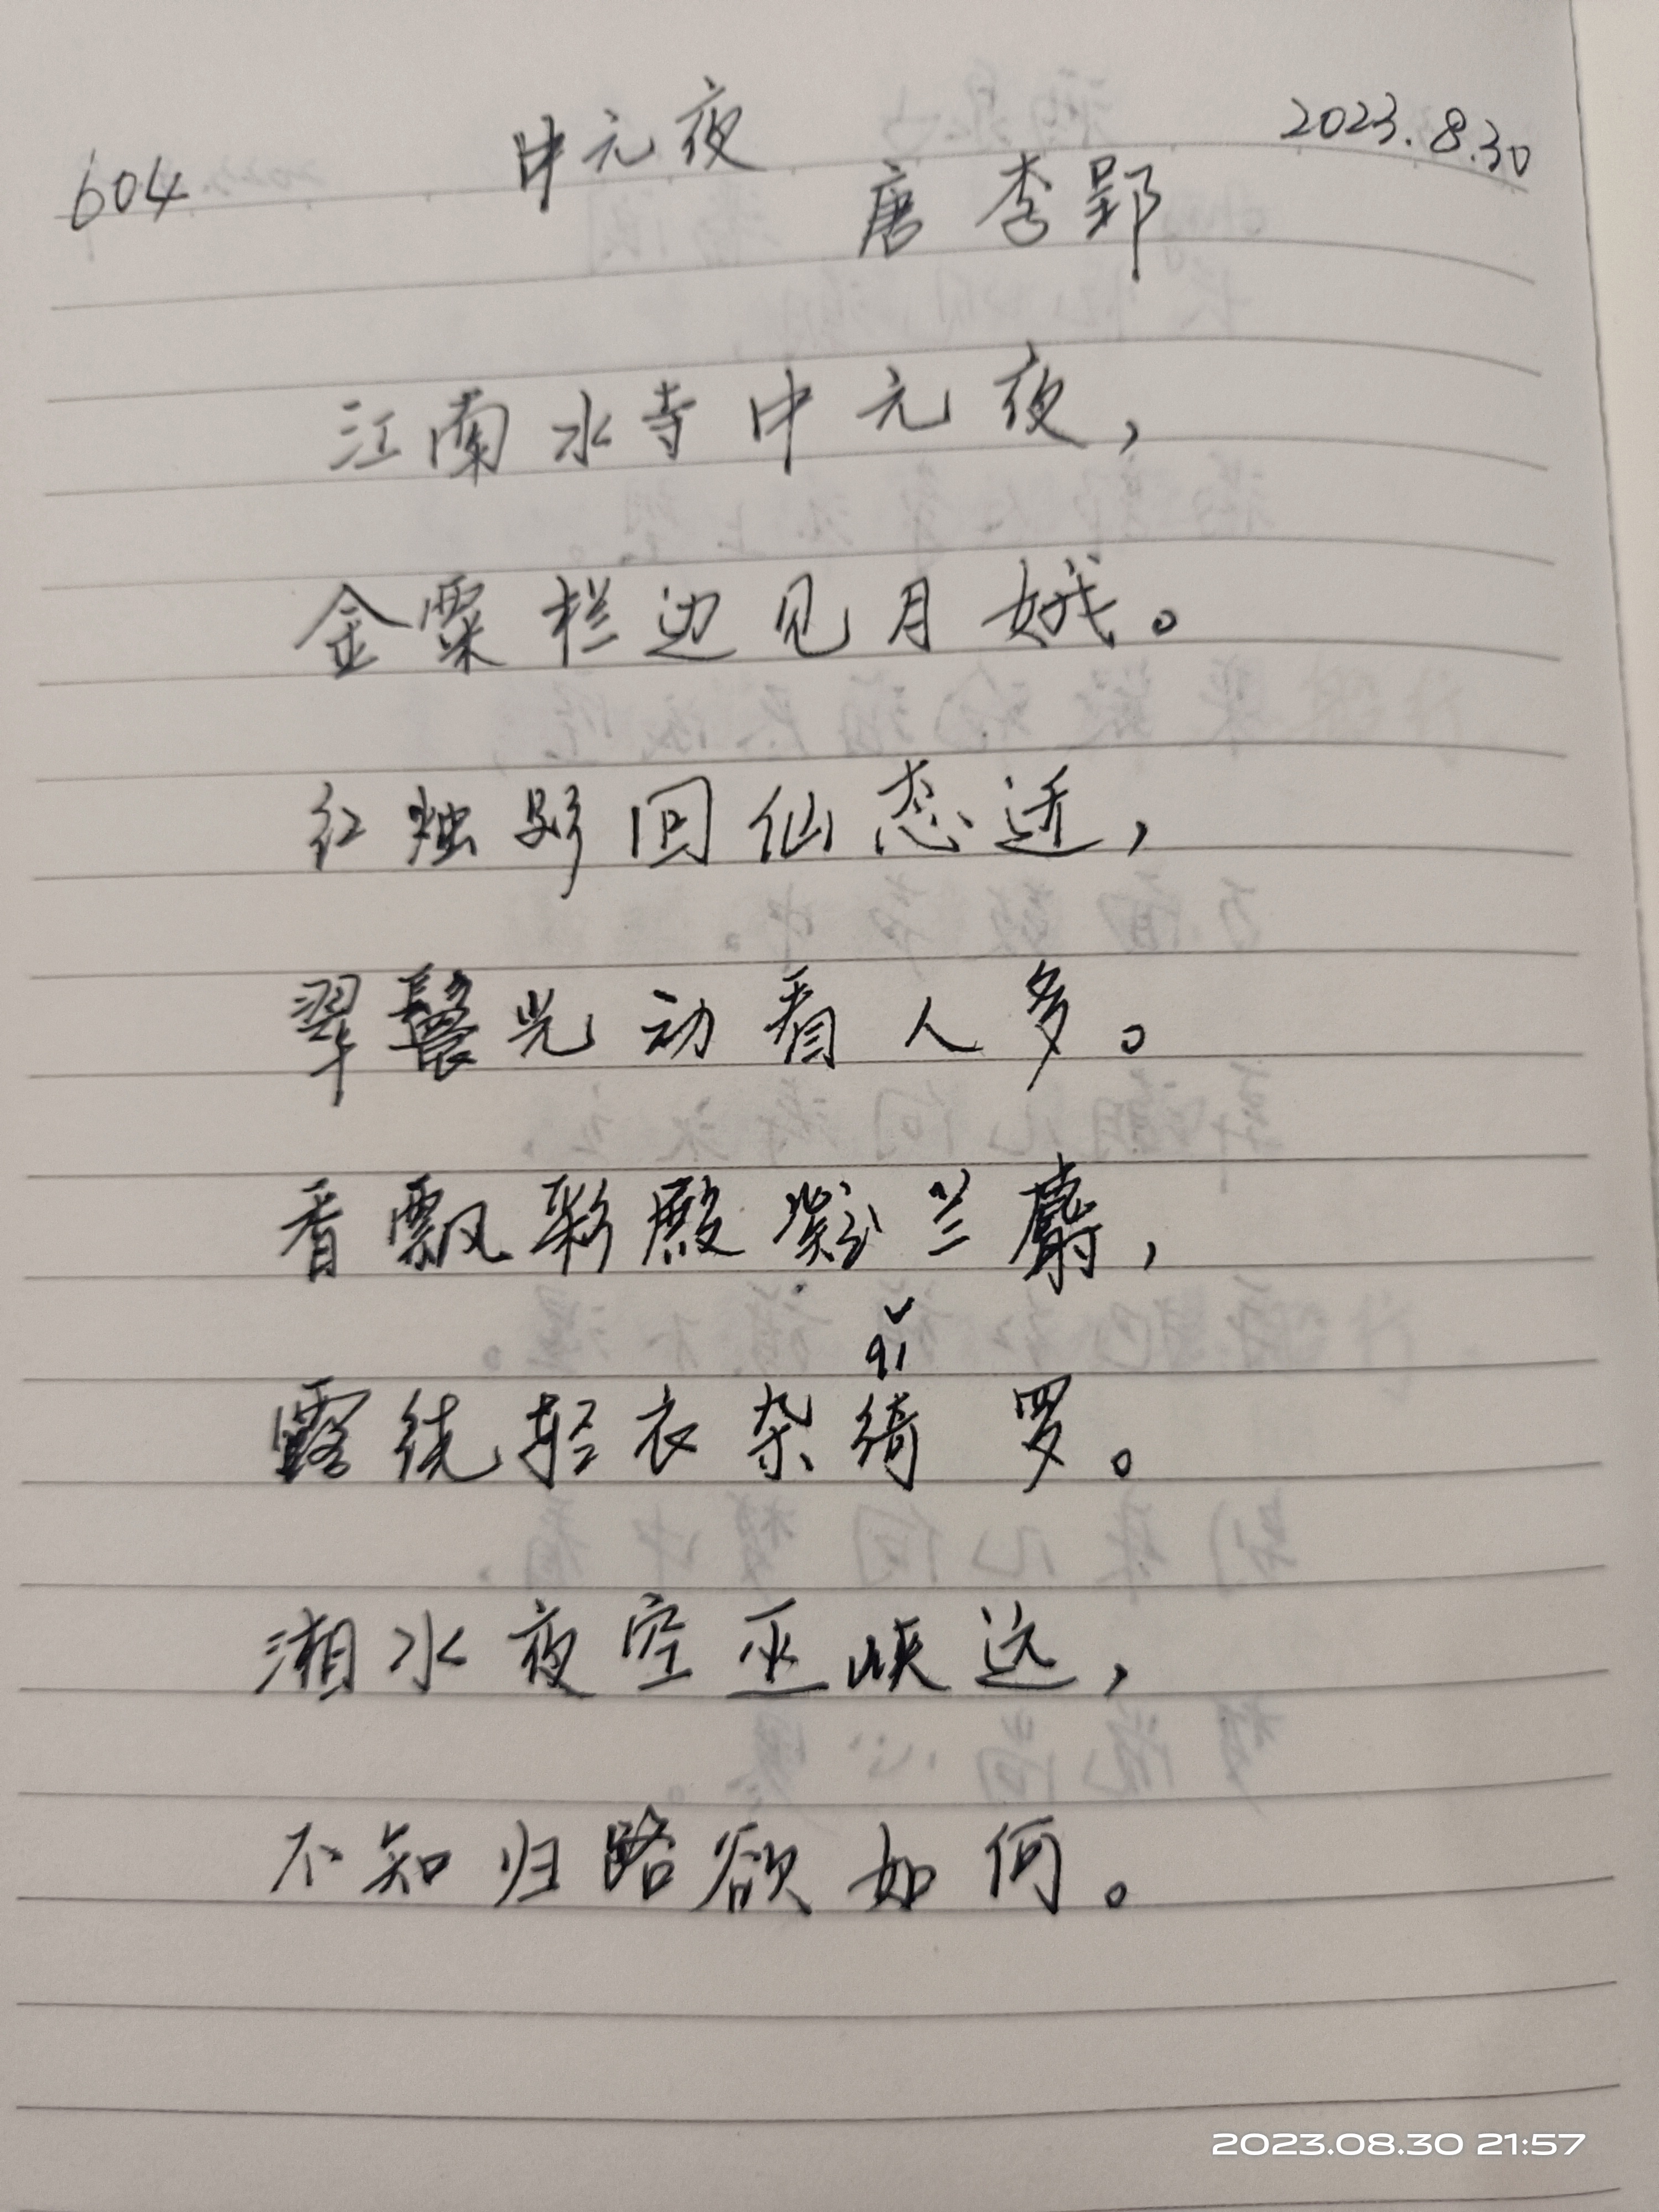 604 中元夜 2023.8.30
唐 李郢
江南水寺中元夜，
金粟栏边见月娥。
红烛影回仙态近，
翠鬟光动看人多。
香飘彩殿凝兰麝，
qǐ
露绕轻衣杂绮罗。
湘水夜空巫峡远，
不知归路欲如何。
2023.08.30 21:57